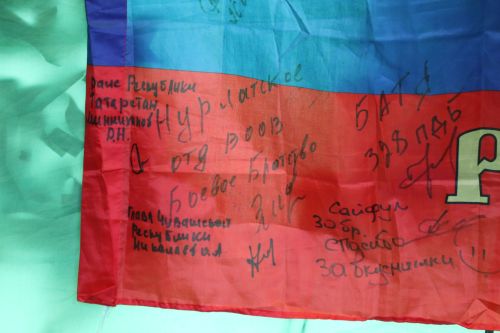 Раис Республики
Татарстан
Минниханов
Р.Н.
Нурлатское
отд ВООВ
Боевое Братство
Глава Чувашской
Республики
Николаев О.А.
БАТЯ
328 ПДБ
Сайфул
30 бр.
спасибо
За вкусняшки!!!
Р